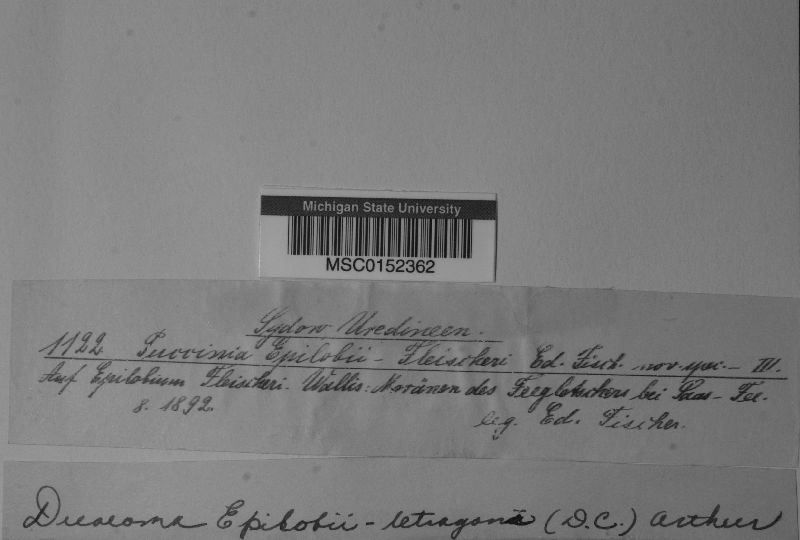 Michigan State University
MSC0152362
Sydow Uredineen.
1122 Puccinia Epilobii - Fleischeri Ed. Fisch. nov. spec. - III.
Auf Epilobium Fleischeri. Wallis: Moränen des Feegletschers bei Saas-Fee.
8. 1892.
leg. Ed. Fischer.
Dicaeoma Epilobii-tetragoni (D.C.) Arthur